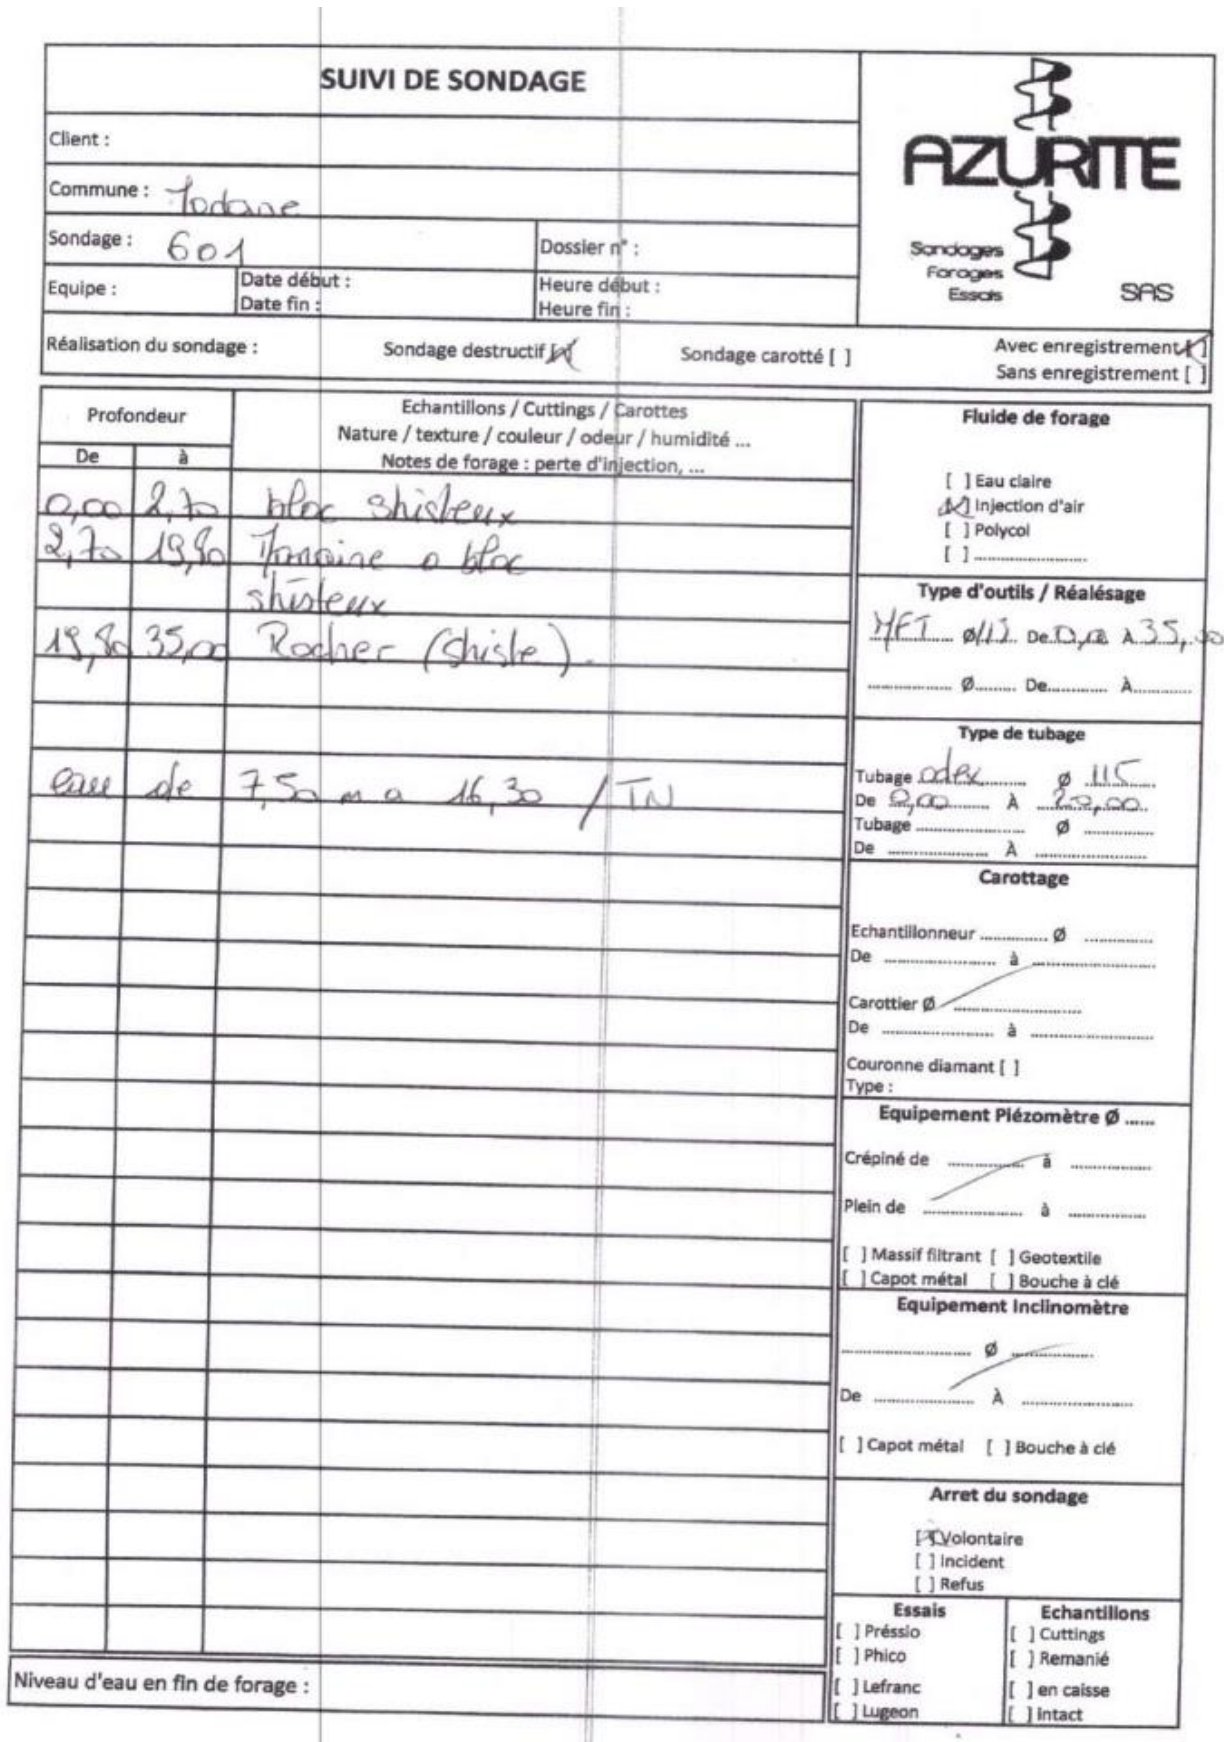 SUIVI DE SONDAGE
Client :
Commune : Modane
Sondage : 601
Dossier n° :
Equipe :
Date début :
Date fin :
Heure début :
Heure fin :
AZURITE
Sondages
Forages
Essais
SAS
Réalisation du sondage :
Sondage destructif [x]
Sondage carotté [ ]
Avec enregistrement [x]
Sans enregistrement [ ]
Profondeur
De à
Echantillons / Cuttings / Carottes
Nature / texture / couleur / odeur / humidité ...
Notes de forage : perte d'injection, ...
0,00 2,70 bloc shisteux
2,70 19,80 a bloc
shisteux
19,80 35,00 Rocher (shiste).
eau de 7,50 m a 16,30 / TN
Niveau d'eau en fin de forage :
Fluide de forage
[ ] Eau claire
[x] Injection d'air
[ ] Polycol
[ ] ........................
Type d'outils / Réalésage
MFT Ø 115 De 0,00 A 35,00
.................. Ø......... De............. À.............
Type de tubage
Tubage odex Ø 115
De 0,00 À 20,00
Tubage ........................ Ø ...............
De ...................... À ........................
Carottage
Echantillonneur ............... Ø ...............
De ........................ à ...........................
Carottier Ø ............................
De ........................ à ...........................
Couronne diamant [ ]
Type :
Equipement Piézomètre Ø ......
Crépiné de ................. à ..................
Plein de ...................... à .................
[ ] Massif filtrant [ ] Geotextile
[ ] Capot métal [ ] Bouche à clé
Equipement Inclinomètre
............................ Ø ..................
De ...................... À ........................
[ ] Capot métal [ ] Bouche à clé
Arret du sondage
[x] Volontaire
[ ] Incident
[ ] Refus
Essais
[ ] Préssio
[ ] Phico
[ ] Lefranc
[ ] Lugeon
Echantillons
[ ] Cuttings
[ ] Remanié
[ ] en caisse
[ ] Intact